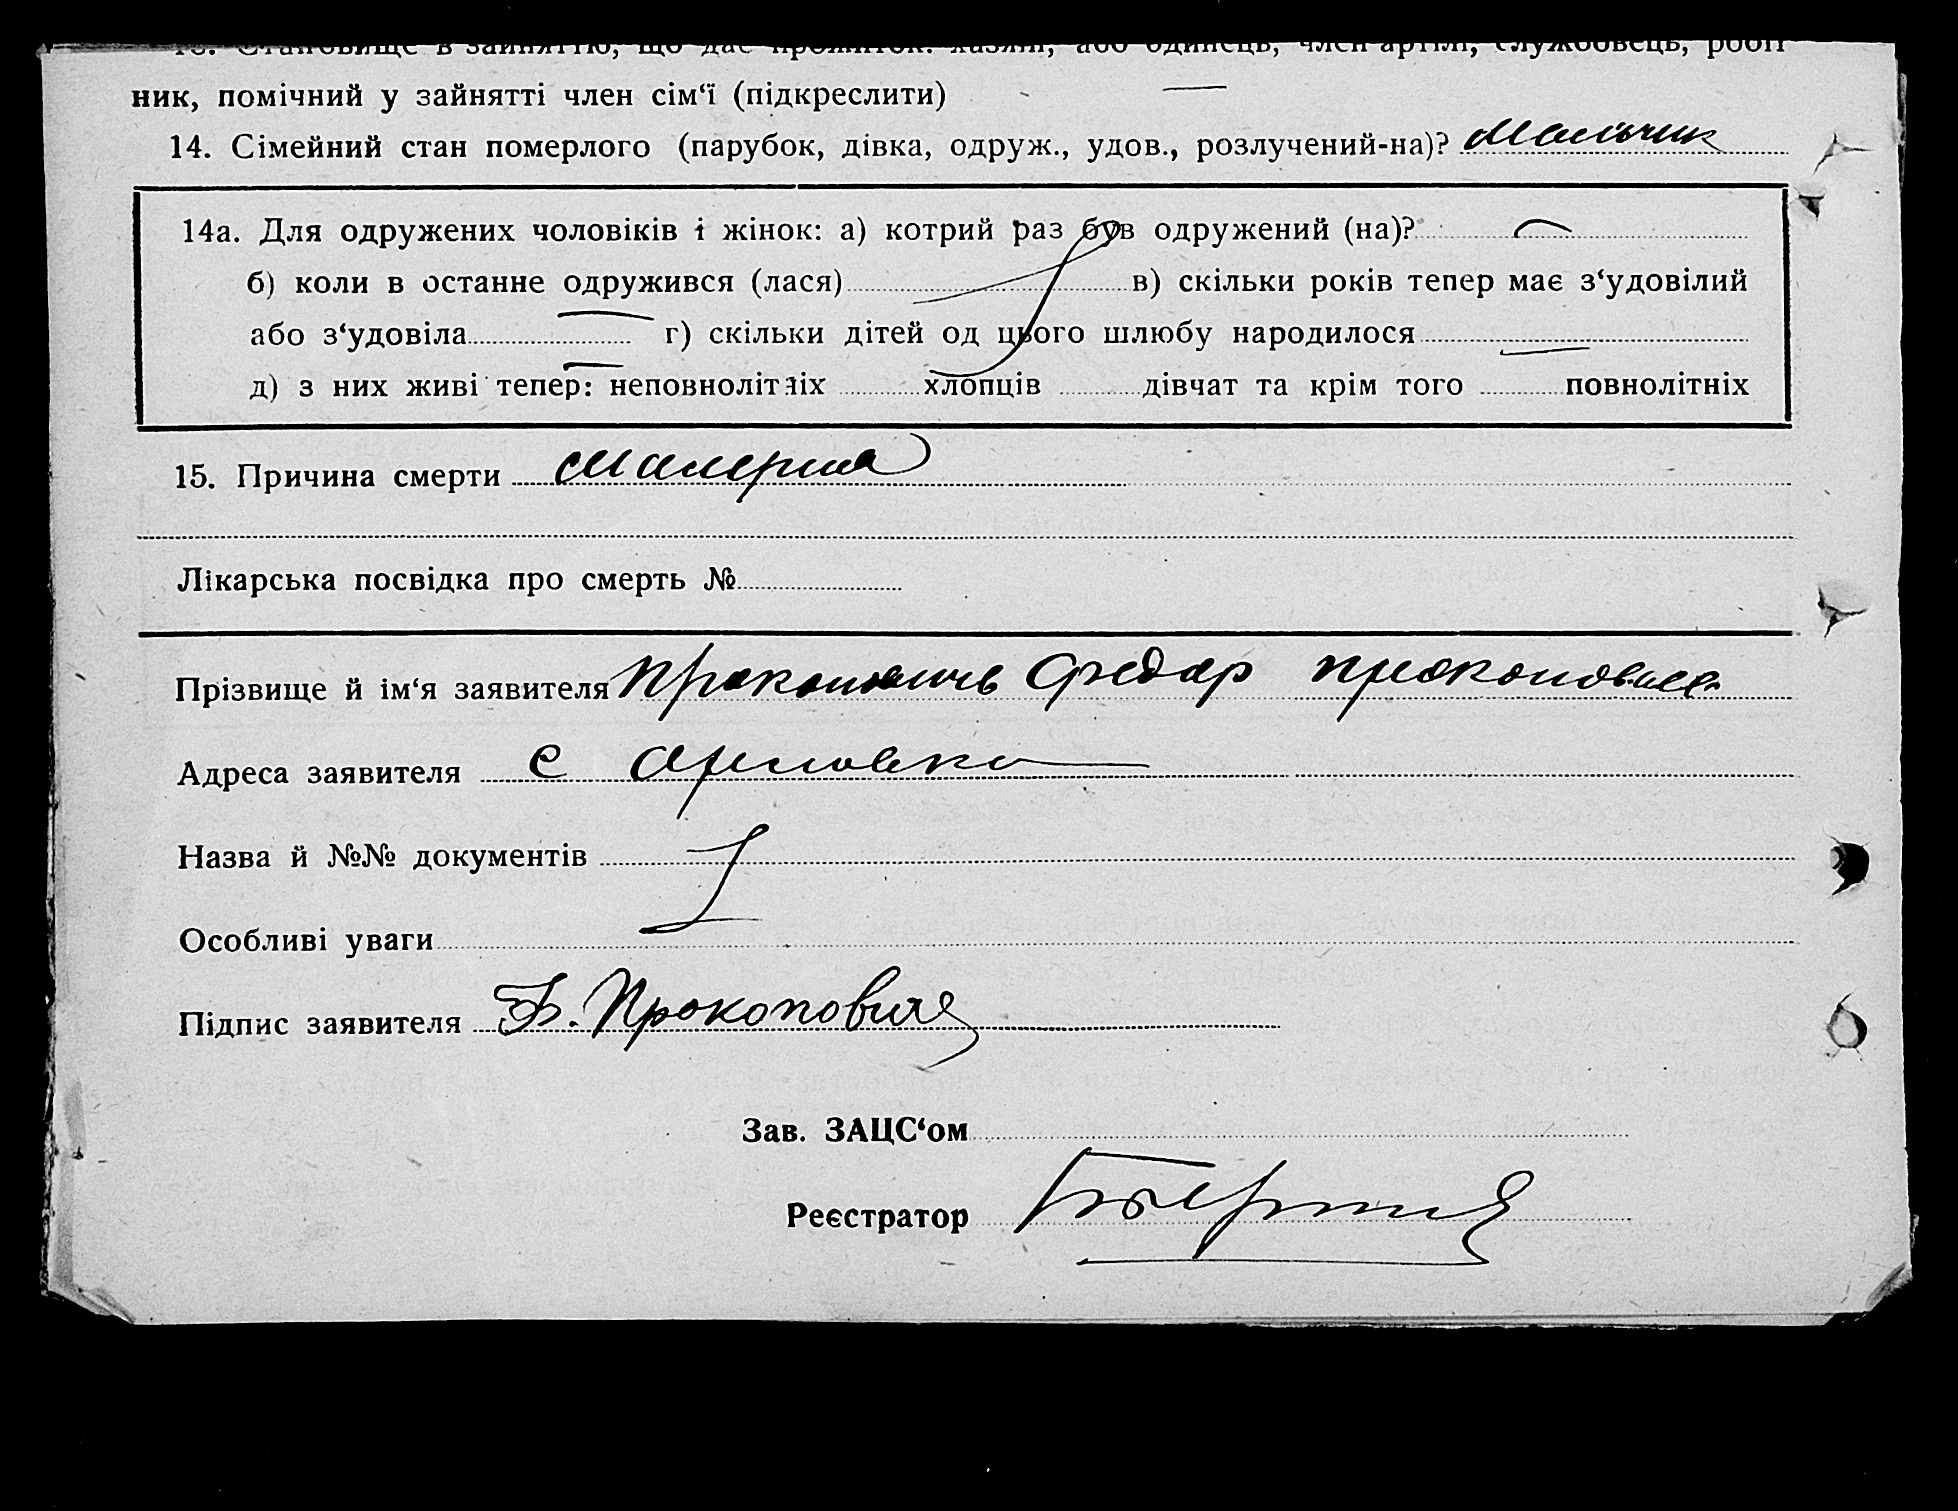 13. Становище в зайняттю, що дає прожиток: хазяїн, або одинець, член артілі, службовець, робіт
ник, помічний у зайнятті член сім‘ї (підкреслити) —
14. Сімейний стан померлого (парубок, дівка, одруж., удов., розлучений-на)? Мальчик
14а. Для одружених чоловіків і жінок: а) котрий раз був одружений (на)?
б) коли в останне одружився (лася) в) скільки років тепер має з‘удовілий
або з‘удовіла г) скільки дітей од цього шлюбу народилося
д) з них живі тепер: неповнолітніх хлопців дівчат та крім того повнолітніх
15. Причина смерти Малерия
Лікарська посвідка про смерть №
Прізвище й ім‘я заявителя Федар
Адреса заявителя с
Назва й №№ документів
Особливі уваги
Підпис заявителя Прокопович
Зав. ЗАЦС‘ом
Реєстратор